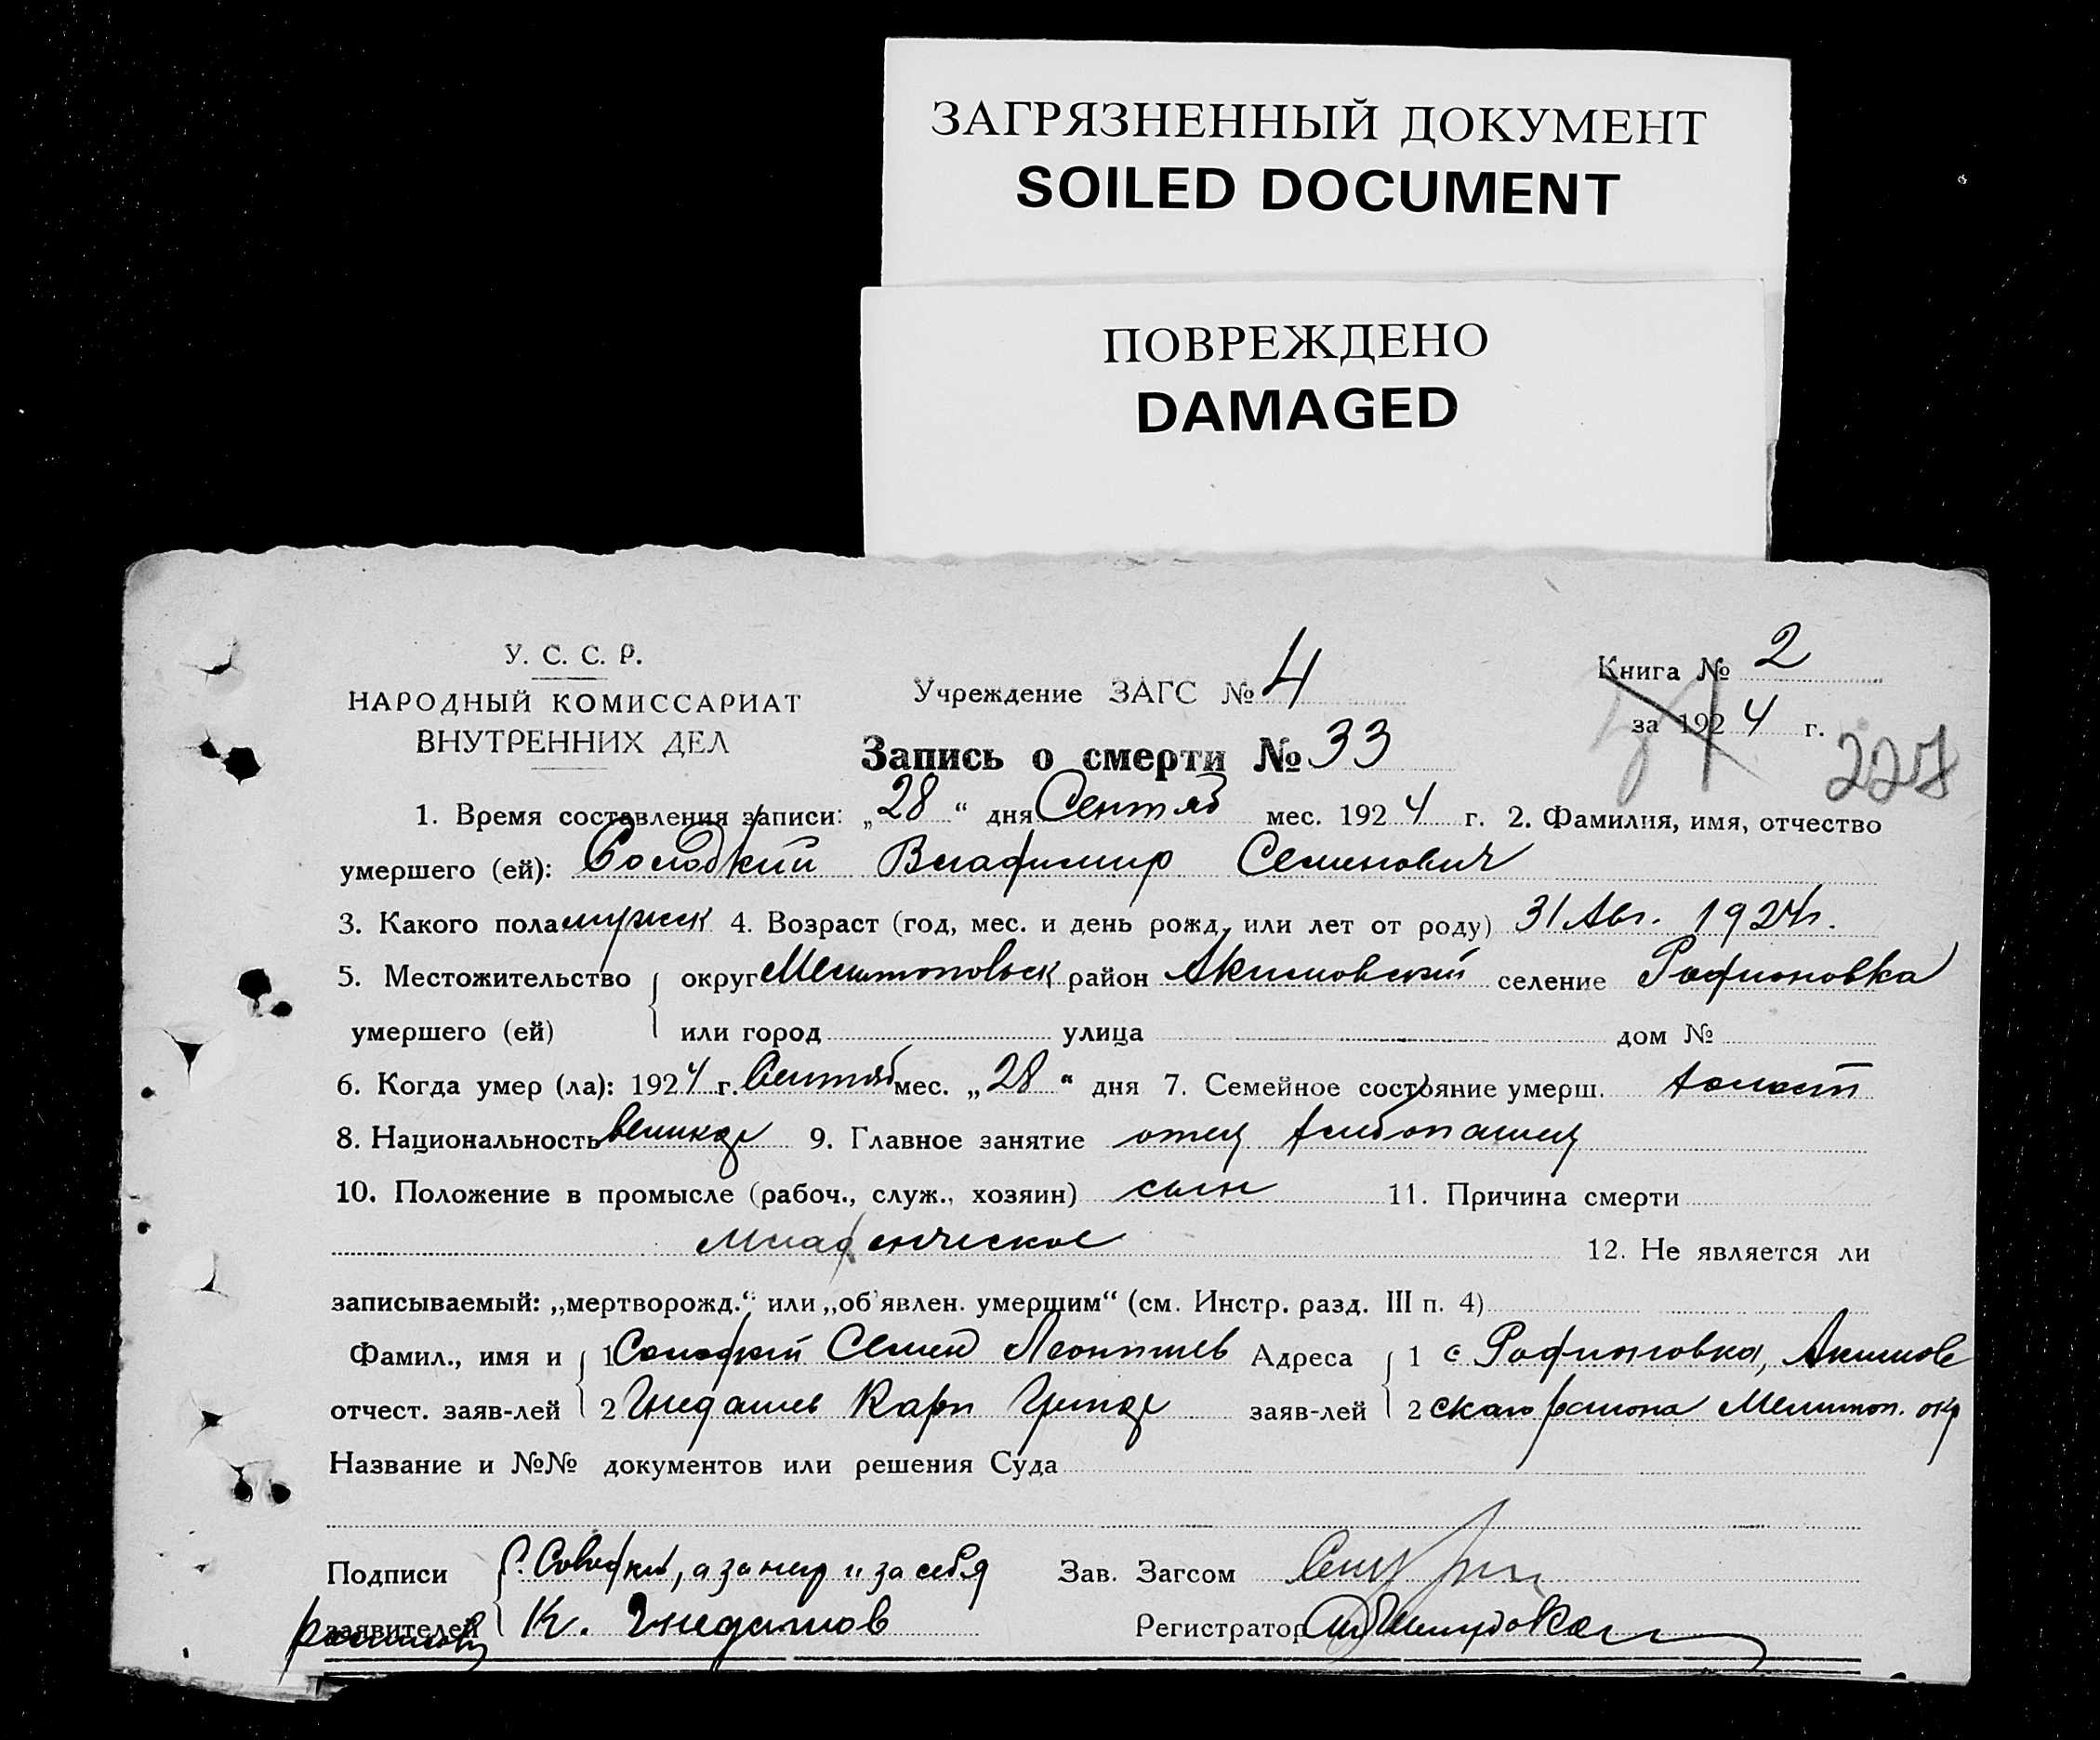 ЗАГРЯЗНЕННЫЙ ДОКУМЕНТ
SOILED DOCUMENT
ПОВРЕЖДЕНО
DAMAGED
У. С. С. Р.
НАРОДНЫЙ КОМИССАРИАТ
ВНУТРЕННИХ ДЕЛ
Учреждение ЗАГС № 4
Книга № 2
за 1924 г.
227
Запись о смерти № 33
1. Время составления записи: „28“ дня Сентяб мес. 1924 г. 2. Фамилия, имя, отчество
умершего (ей): Солодкий Владимир Семенович
3. Какого пола мужск 4. Возраст (год, мес. и день рожд. или лет от роду) 31 Авг. 1924 г.
5. Местожительство округ Мелитопольск район Акимовский селение Родионовка
умершего (ей) или город улица дом №
6. Когда умер (ла): 1924 г. Сентяб мес. „28“ дня 7. Семейное состояние умерш. холост
8. Национальность великор 9. Главное занятие отец хлебопашец
10. Положение в промысле (рабоч., служ., хозяин) сын 11. Причина смерти
Младенческое 12. Не является ли
записываемый: „мертворожд.“ или „об'явлен. умершим“ (см. Инстр. разд. III п. 4)
Фамил., имя и 1 Солодкий Семен Леонтиев Адреса 1 с Родионовка, Акимов
отчест. заяв-лей 2 Гнедашев Карп заяв-лей 2 скаго района Мелитоп. окр
Название и №№ документов или решения Суда
Подписи С. Солодкий, а за нер и за себя Зав. Загсом
заявителей К. Гнедашов Регистратор